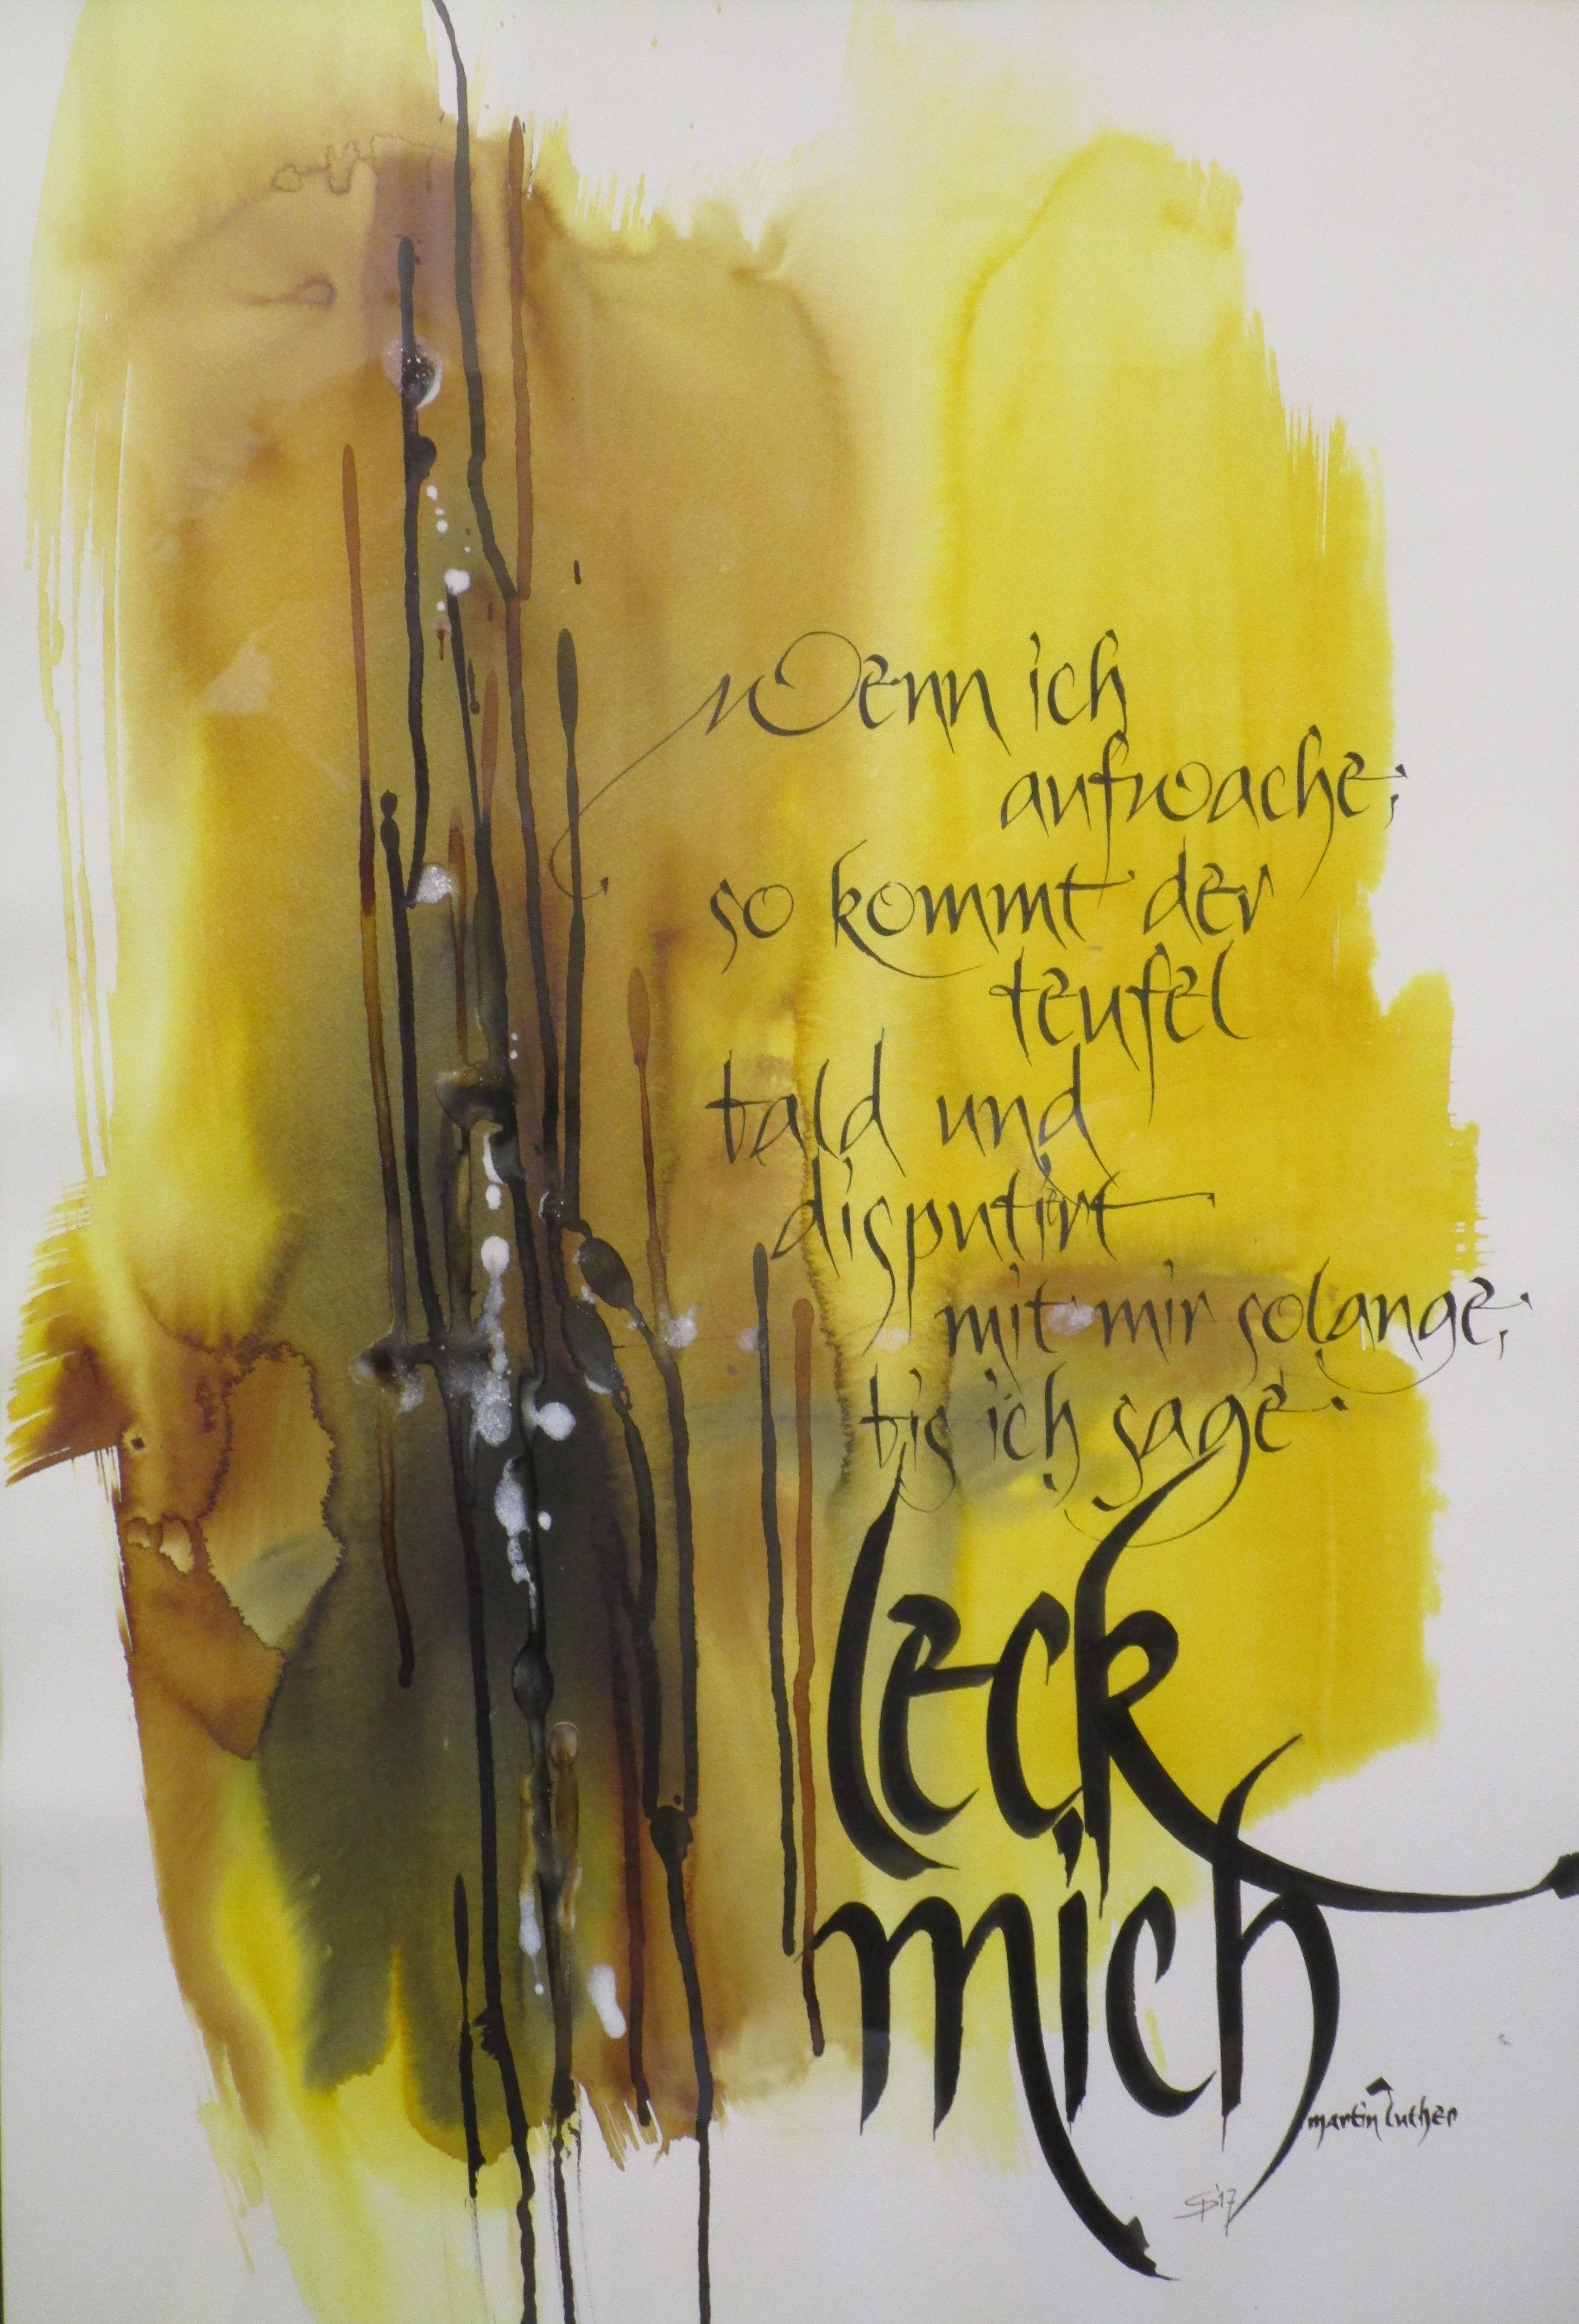 Wenn ich
aufwache,
so kommt der
teufel
bald und
disputiert
mit mir solange,
bis ich sage
leck
mich
martin luther